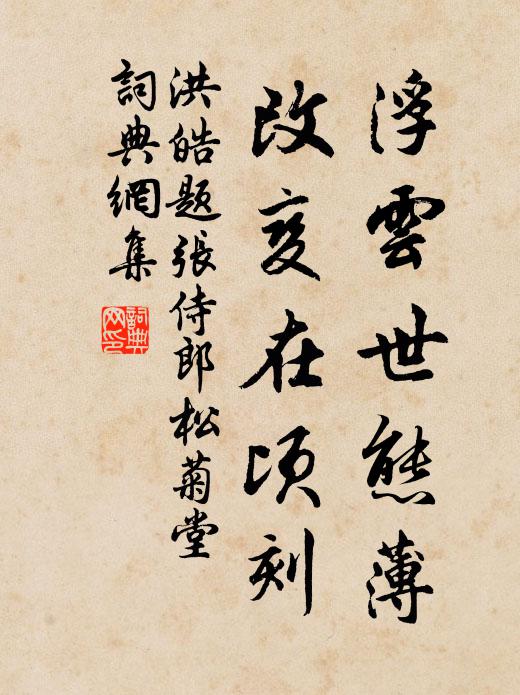 浮雲世態薄
改变在頃刻
洪皓題張侍郎松菊堂
詞典網集
詞典网印